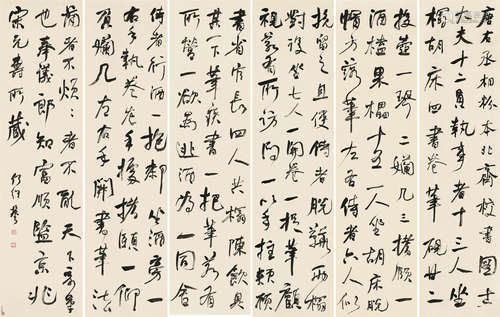 唐右丞相榻本北齊校書圖士
大夫十二員執事者十三人坐
榻胡床四書卷筆硯廿二
投壺一琴二嬾几三搘頤一
酒榼果樏十五一人坐胡床脫
帽方落筆左右侍者六人似
挽留之且使侍者脫鞾兩榻
對設坐七人一開卷一筆顧
視若有所訪問一以手拄頰顧
書省官長四人共榻陳飲具
其一下筆疾書一把筆若有
所營一欲為逃酒一同舍
侍者行酒一抱膝坐酒旁一
右手執卷左手據搘頤一仰
負嬾几左右手開書筆法
簡者不煩煩者不亂天下奇筆
也奉儀郎知富順監京兆
宋元壽所藏